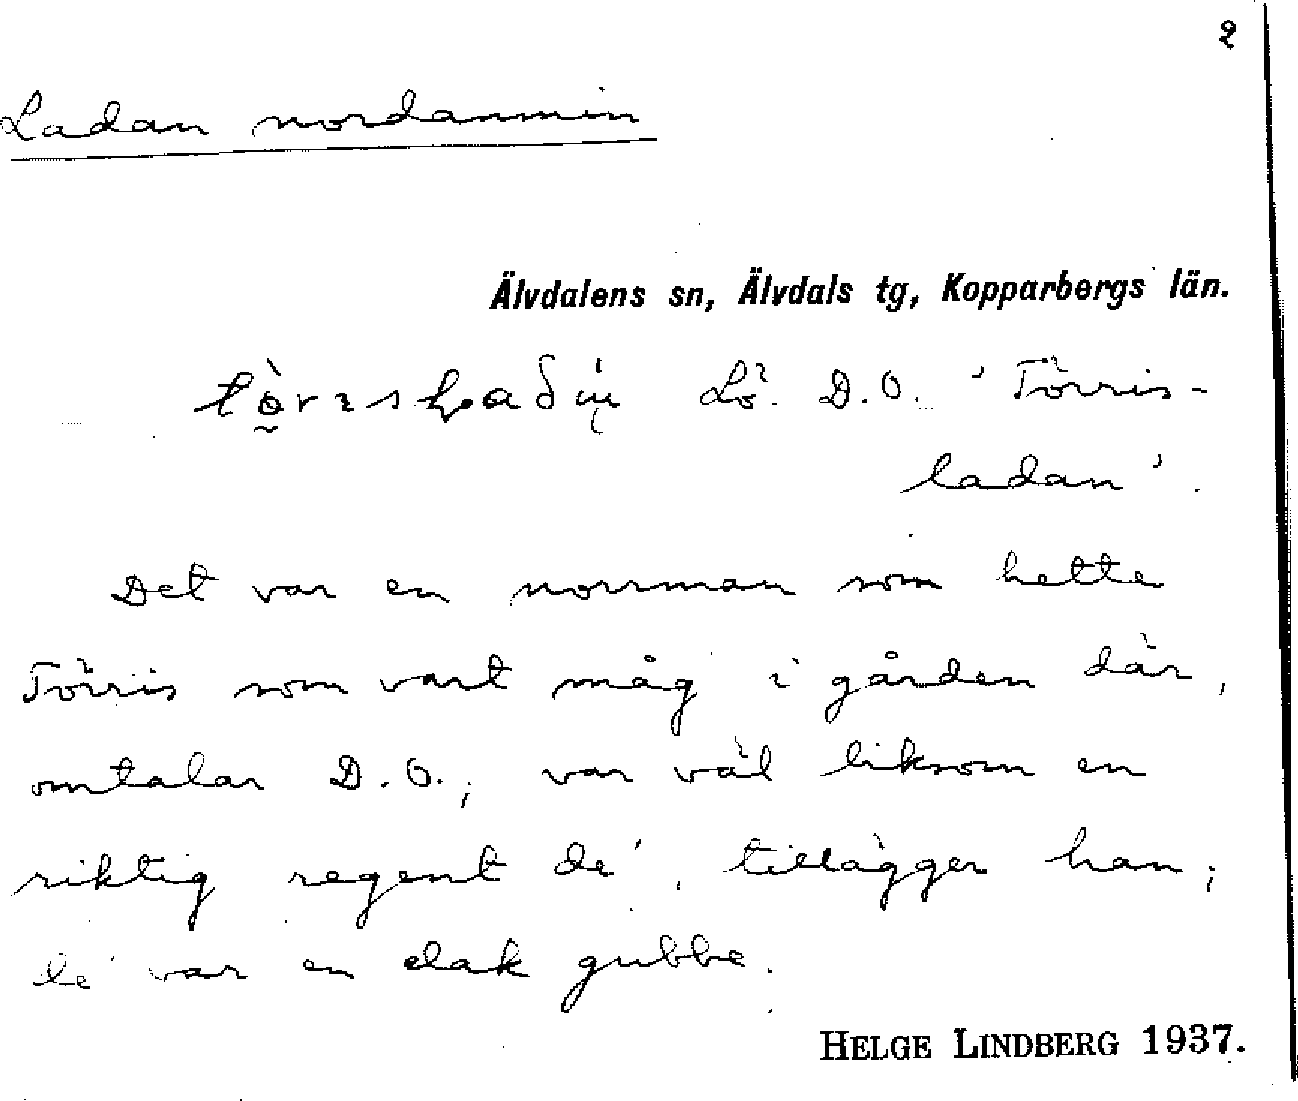 2
Ladan nordanmin
Älvdalens sn, Älvdals tg, Kopparbergs län.
Lö. D.O. 'Törris-
ladan'.
Det var en norrman som hette
Törris som vart måg i gården där,
omtalar D.O.; var väl liksom en
riktig regent de', tillägger han;
de' var en elak gubbe.
HELGE LINDBERG 1937.